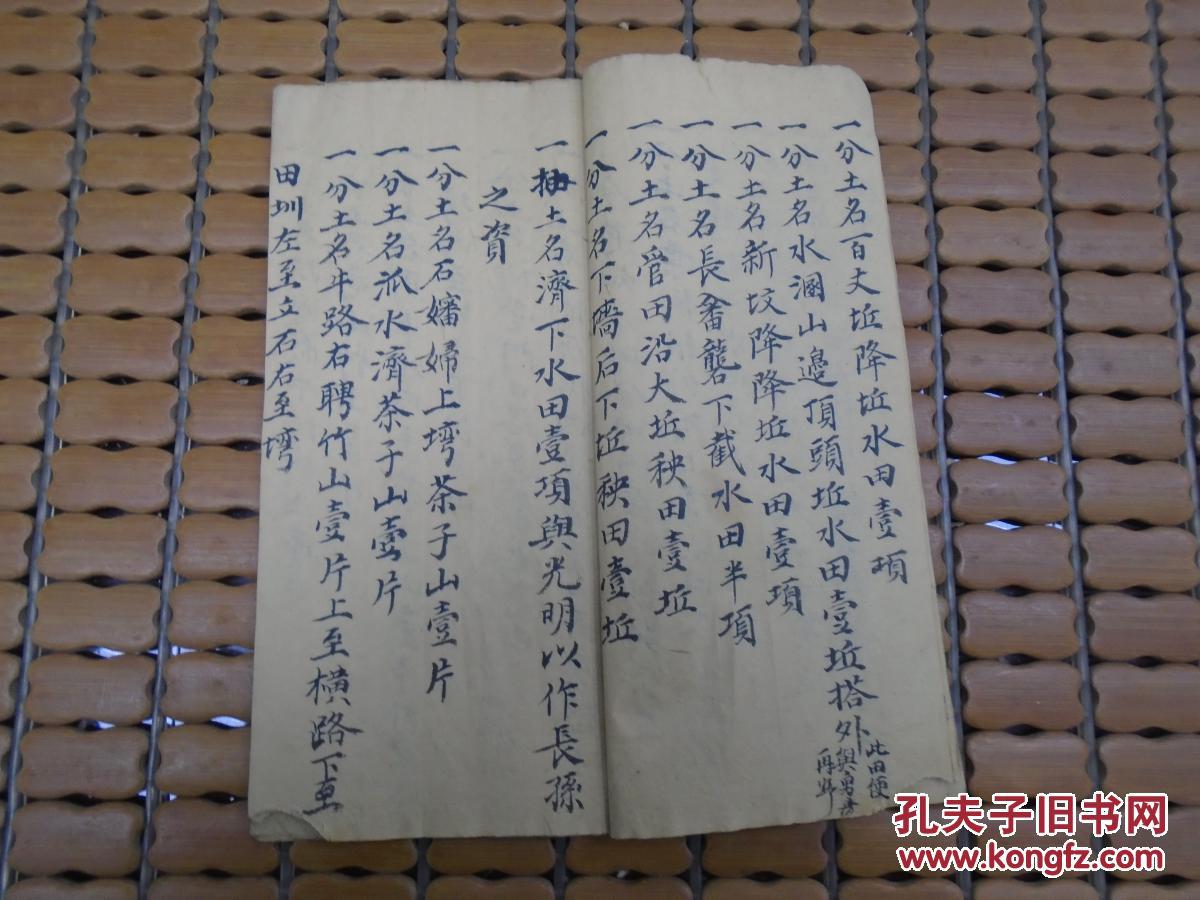 一分土名百丈坵降坵水田壹項
一分土名水涵山邉頂頭坵水田壹坵搭外
此田便
與男
再
一分土名新坟降降坵水田壹項
一分土名長番礱下截水田半項
一分土名官田沿大坵秧田壹坵
一分土名下墻后下坵秧田壹坵
一抽土名濟下水田壹項與光明以作長孫
之資
一分土名石嬸婦上塆茶子山壹片
一分土名泒水濟茶子山壹片
一分土名牛路右聘竹山壹片上至橫路下至
田圳左至立石右至塆
孔夫子旧书网
www.kongfz.com